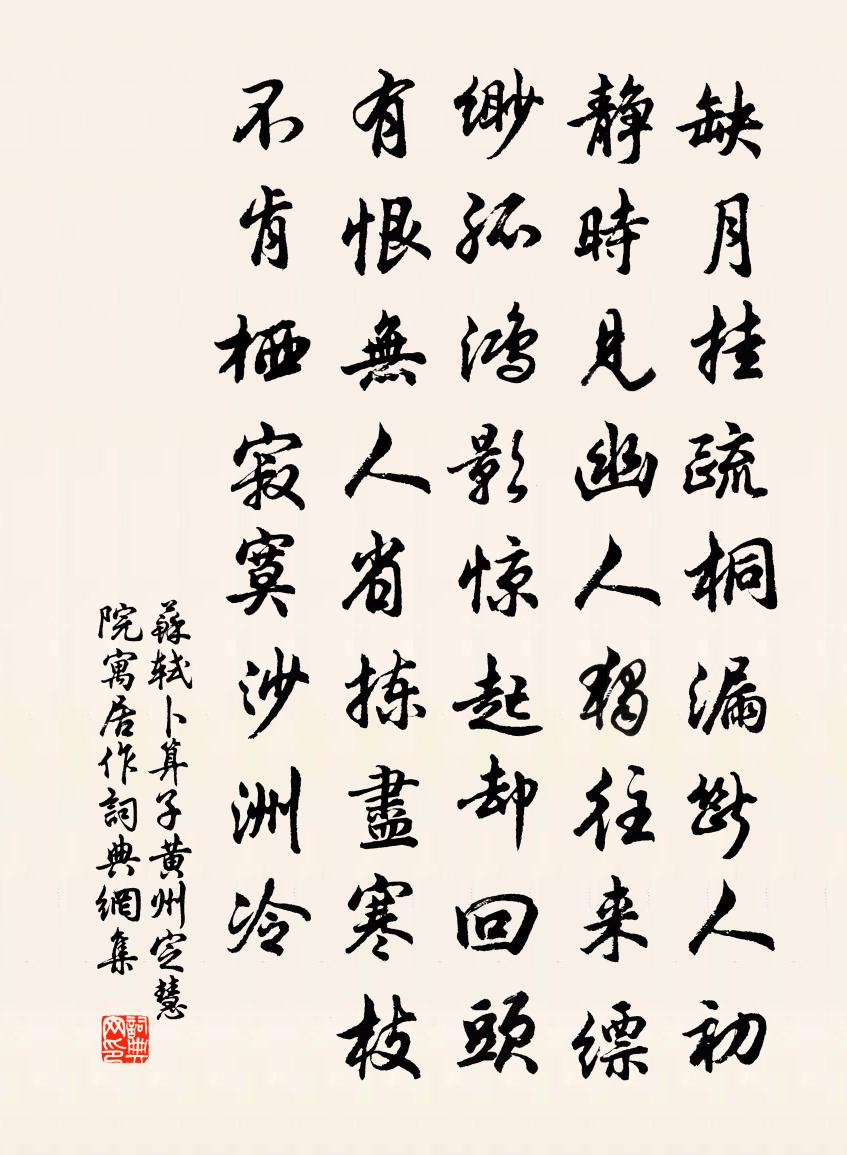 缺月挂疏桐漏断人初
静時見幽人獨往来缥
缈孤鸿影惊起却回頭
有恨無人省拣盡寒枝
不肯栖寂寞沙洲冷
蘇軾卜算子黄州定慧
院寓居作詞典網集
詞典网印